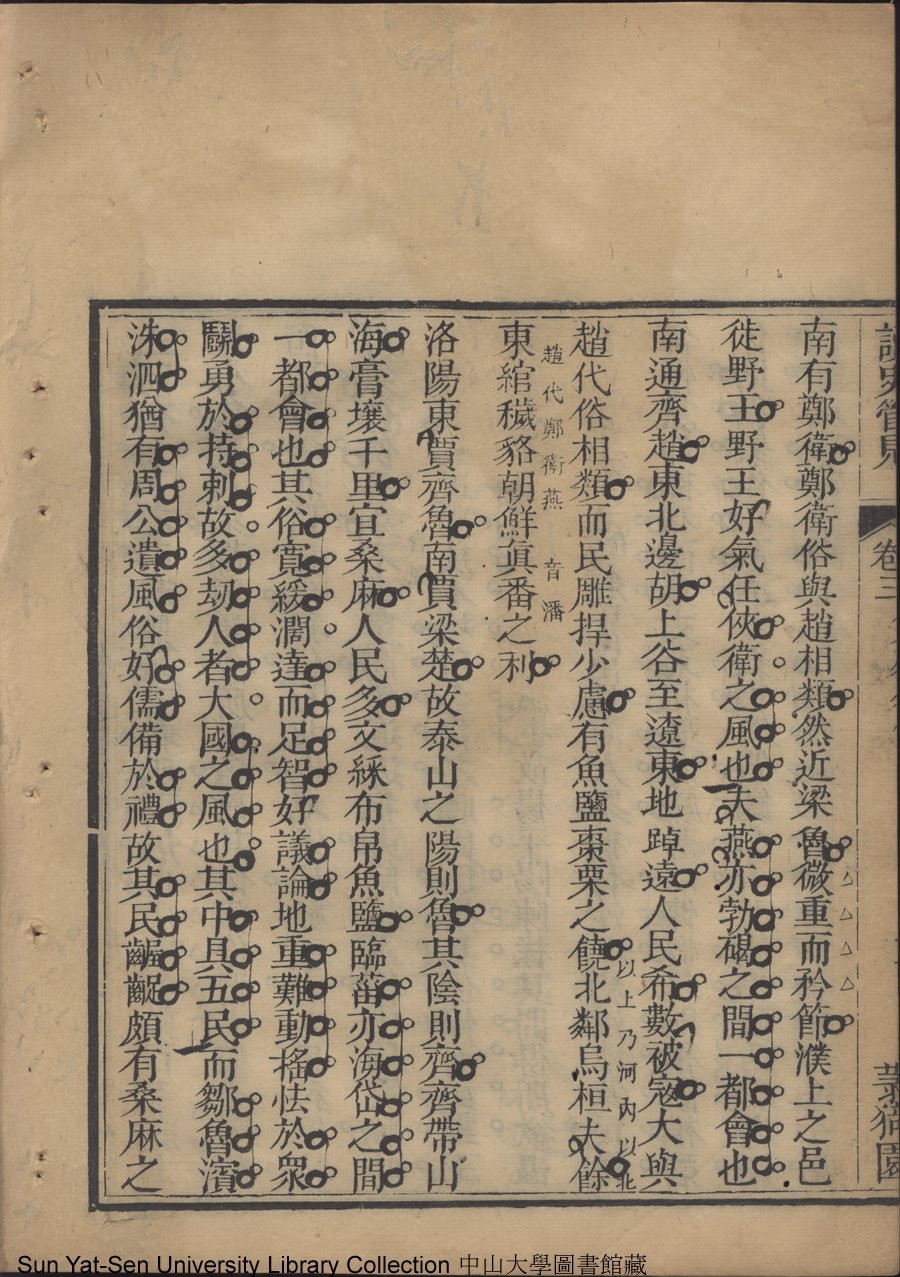 讀史管見
卷三
南有鄭衛鄭衛俗與趙相類然近梁魯微重而矜節濮上之邑
徙野王野王好氣任俠衛之風也夫燕亦勃碣之間一都會也
南通齊趙東北邊胡上谷至遼東地踔遠人民希數被寇大與
趙代俗相類而民雕捍少慮有魚鹽棗栗之饒北鄰烏桓夫餘
以上乃河內以北
趙代鄭衛燕
音潘
東綰穢貉朝鮮真番之利
洛陽東賈齊魯南賈梁楚故泰山之陽則魯其陰則齊齊帶山
海膏壤千里宜桑麻人民多文綵布帛魚鹽臨菑亦海岱之間
一都會也其俗寬緩濶達而足智好議論地重難動搖怯於眾
鬬勇於持刺故多劫人者大國之風也其中具五民而鄒魯濱
洙泗猶有周公遺風俗好儒備於禮故其民齷齪頗有桑麻之
Sun Yat-Sen University Library Collection 中山大學圖書館藏